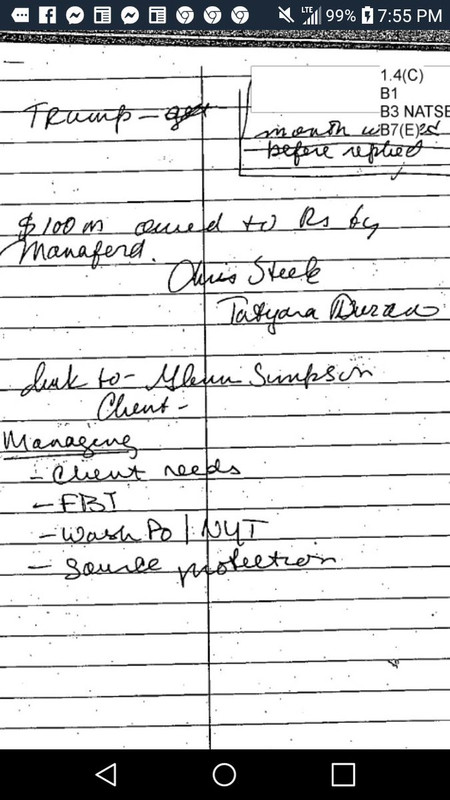 LTE 99% 7:55 PM
1.4(C)
B1
B3 NATSE
B7(E)
Trump -
month
before replied
$100 m owed to Rs by
Manaford.
Chris Steele
Tatyana
link to - Glenn Simpson
Client -
Managing
- Client needs
- FBI
- Wash Po | NYT
- source protection